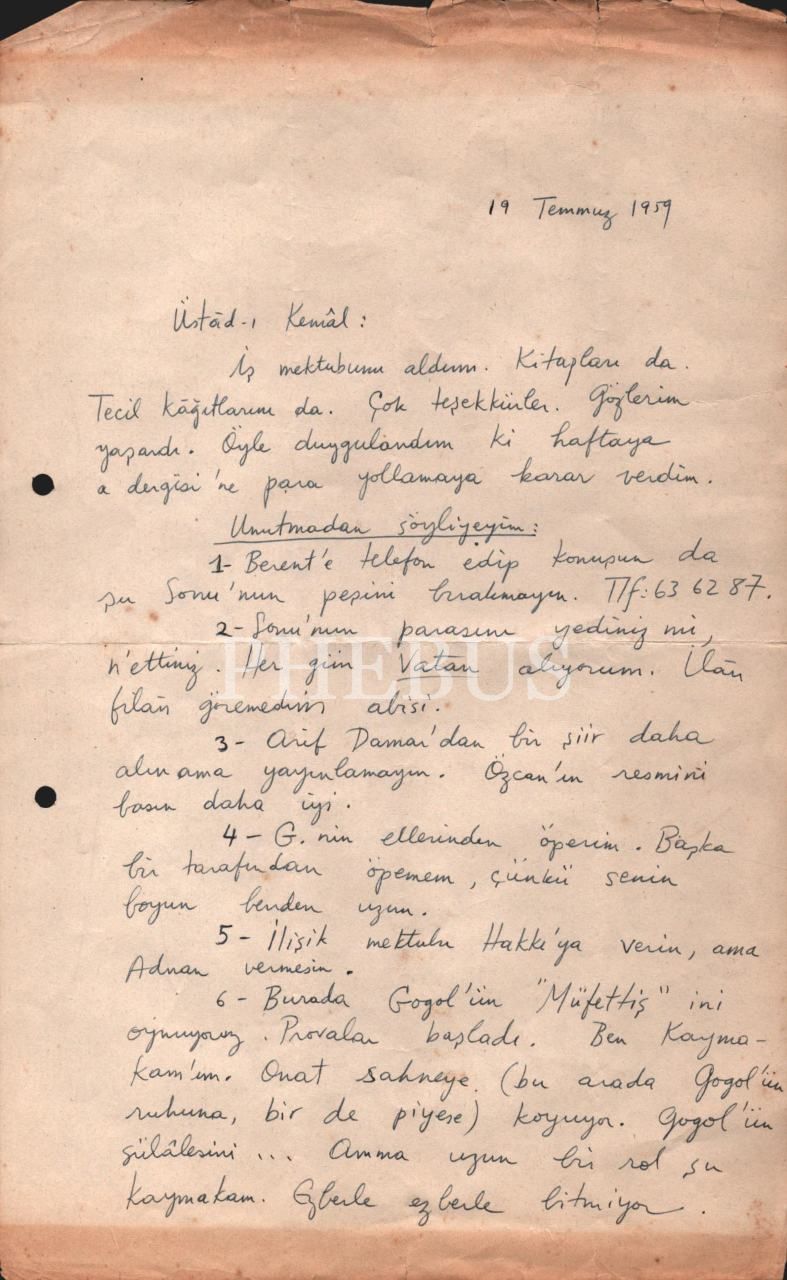 19 Temmuz 1959
Üstâd-ı Kemâl:
İş mektubunu aldım. Kitapları da.
Tecil kâğıtlarını da. Çok teşekkürler. Gözlerim
yaşardı. Öyle duygulandım ki haftaya
a dergisi'ne para yollamaya karar verdim.
Unutmadan söyliyeyim:
1- Berent'e telefon edip konuşun da
şu Sonu'nun peşini bırakmayın. Tlf: 63 62 87.
2- Sonu'nun parasını yediniz mi,
n'ettiniz. Her gün Vatan alıyorum. İlân
filân göremedim abisi.
3- Arif Damar'dan bir şiir daha
alın ama yayınlamayın. Özcan'ın resmini
basın daha iyi.
4- G.nin ellerinden öperim. Başka
bir tarafından öpemem, çünkü senin
boyun benden uzun.
5- İlişik mektubu Hakkı'ya verin, ama
Adnan vermesin.
6- Burada Gogol'ün "Müfettiş"ini
oynuyoruz. Provalar başladı. Ben Kayma-
kam'ım. Onat sahneye (bu arada Gogol'ün
ruhuna, bir de piyese) koyuyor. Gogol'ün
sülâlesini... Amma uzun bir rol şu
Kaymakam. Ezberle ezberle bitmiyor.
PHEBUS